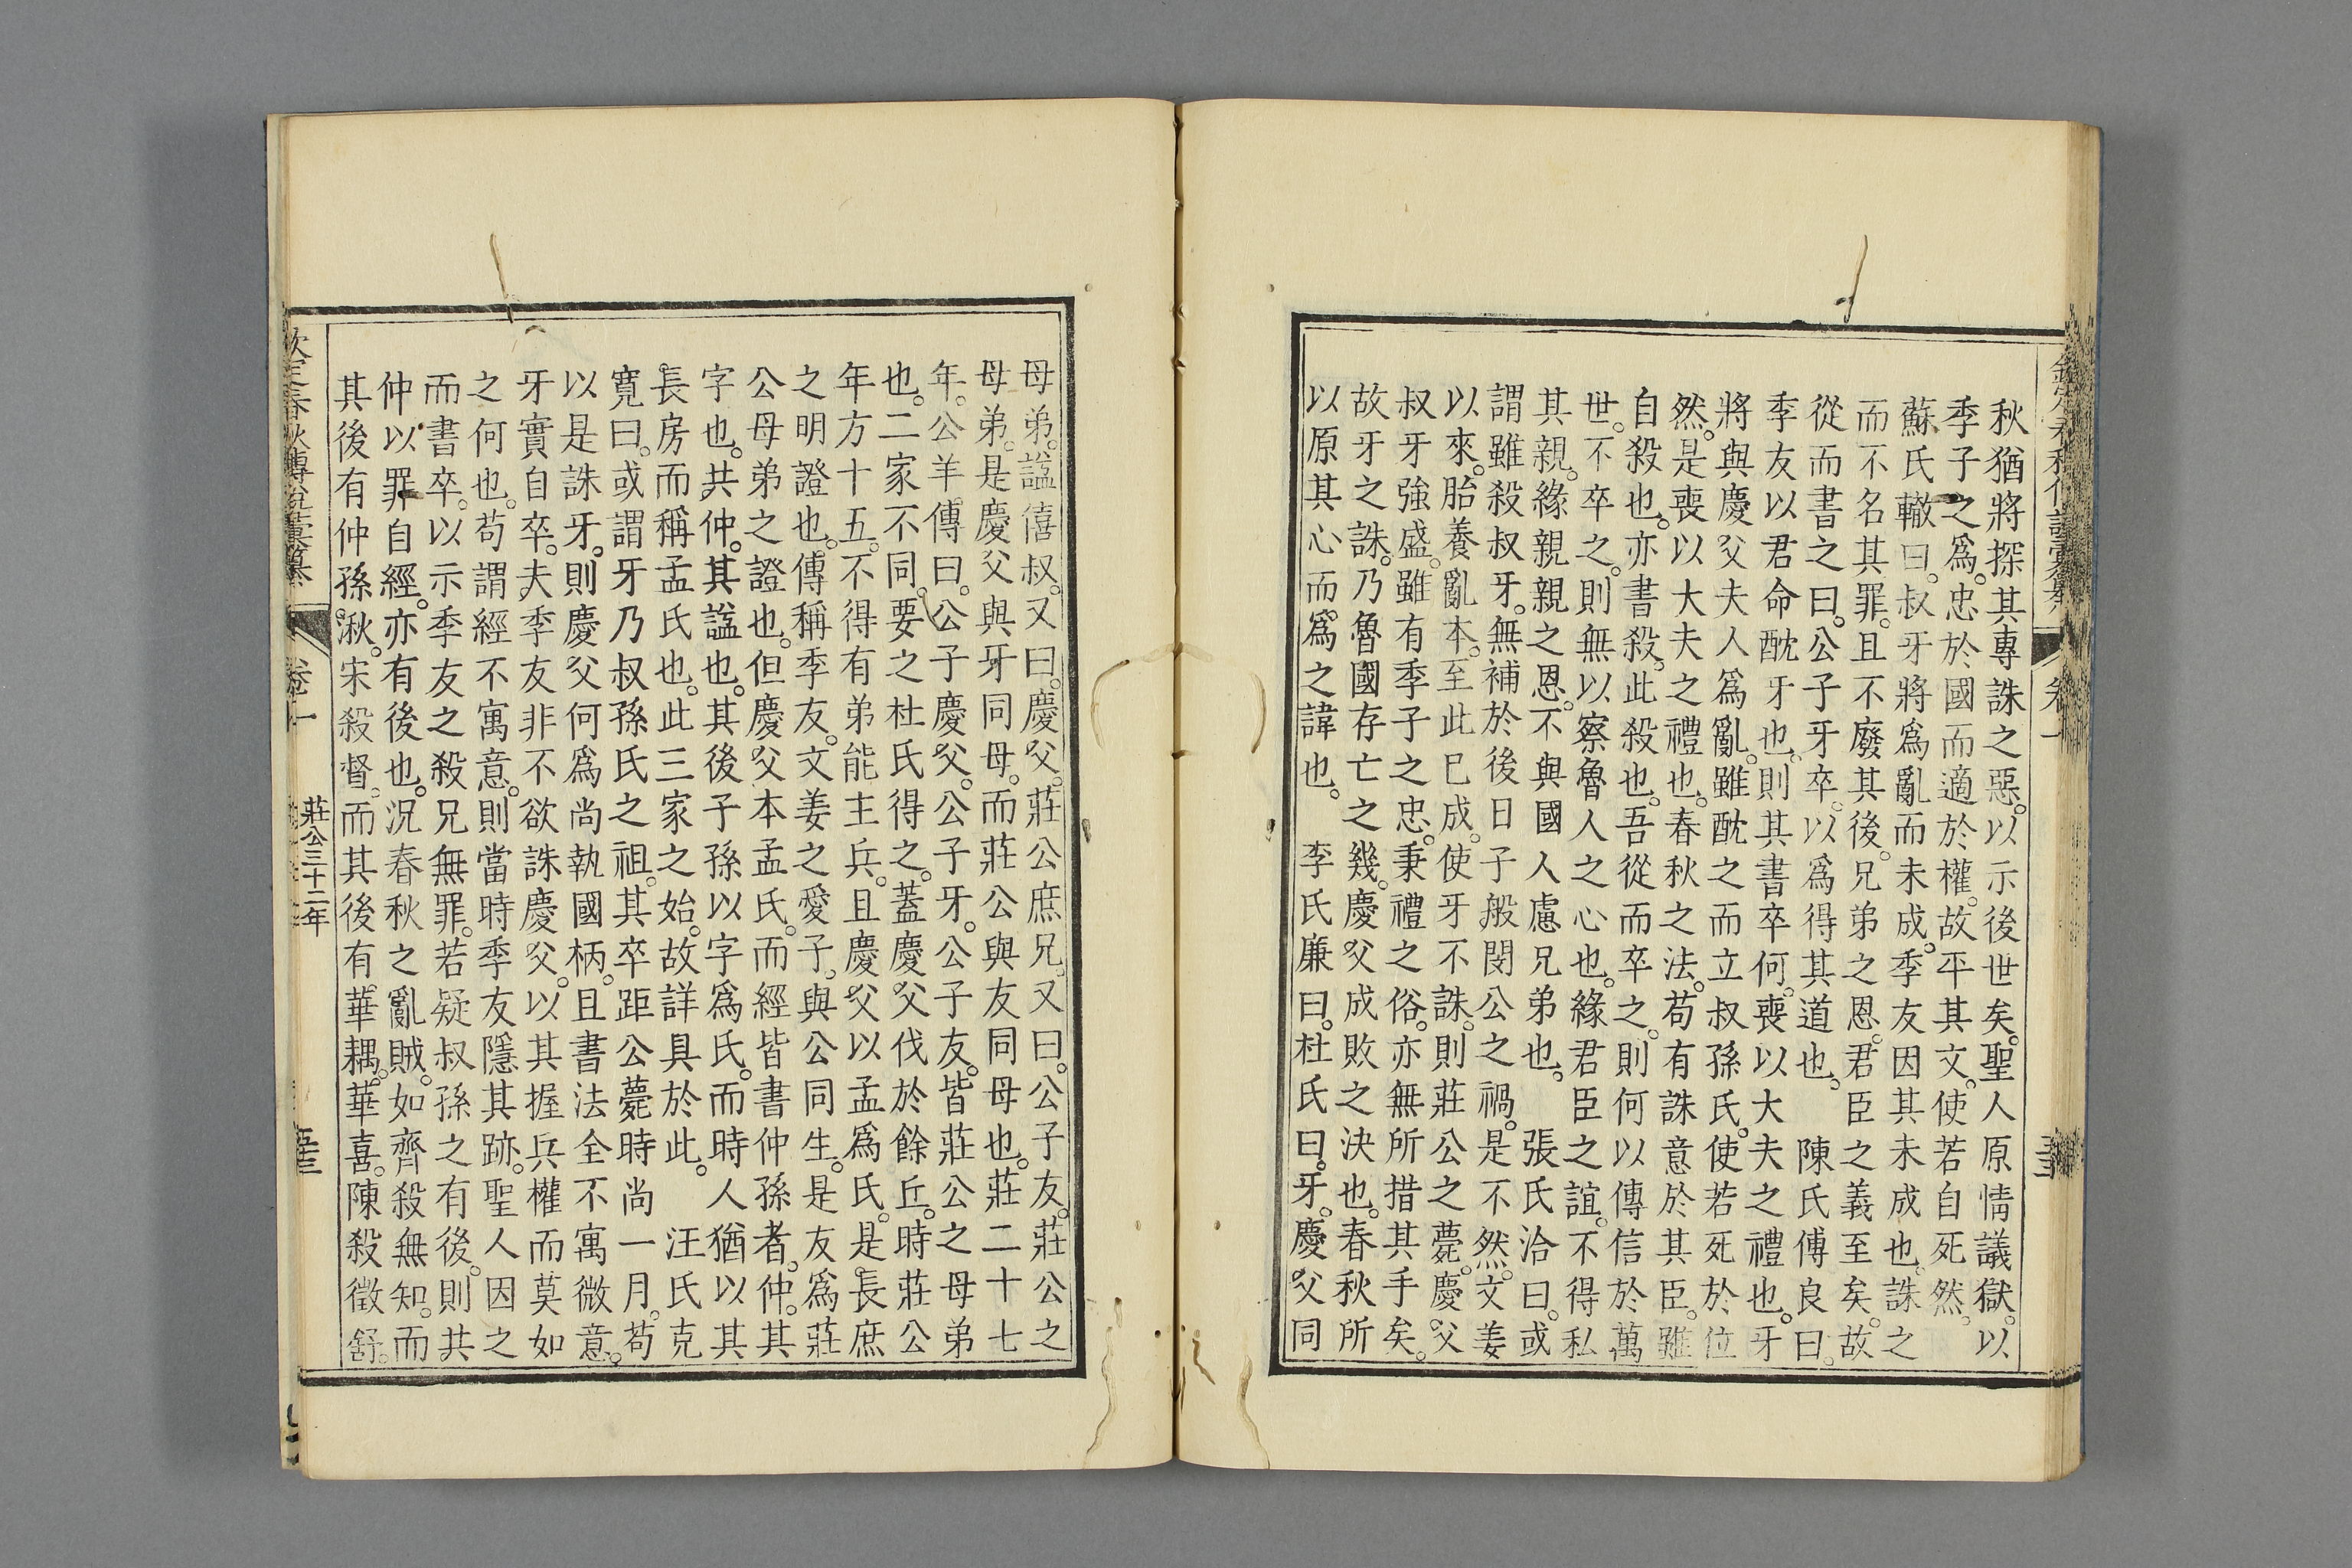 秋猶將探其專誅之惡。以示後世矣。聖人原情議獄。以
季子之爲。忠於國而適於權。故平其文。使若自死然。
蘇氏轍曰。叔牙將爲亂而未成。季友因其未成也。誅之
而不名其罪。且不廢其後。兄弟之恩。君臣之義至矣。故
從而書之曰。公子牙卒。以爲得其道也。 陳氏傅良曰。
季友以君命酖牙也。則其書卒何。喪以大夫之禮也。牙
將與慶父夫人爲亂。雖酖之而立叔孫氏。使若死於位
然。是喪以大夫之禮也。春秋之法。苟有誅意於其臣。雖
自殺也。亦書殺。此殺也。吾從而卒之。則何以傳信於萬
世。不卒之。則無以察魯人之心也。緣君臣之誼。不得私
其親。緣親親之恩。不與國人慮兄弟也。 張氏洽曰。或
謂雖殺叔牙。無補於後日子般閔公之禍。是不然。文姜
以來。胎養亂本。至此巳成。使牙不誅。則莊公之薨。慶父
叔牙強盛。雖有季子之忠。秉禮之俗。亦無所措其手矣。
故牙之誅。乃魯國存亡之幾。慶父成敗之決也。春秋所
以原其心而。爲之諱也。 李氏廉曰。杜氏曰。牙。慶父同
母弟。諡僖叔。又曰。慶父。莊公庶兄。又曰。公子友。莊公之
母弟。是慶父與牙同母。而莊公與友同母也。莊二十七
年。公羊傳曰。公子慶父。公子牙。公子友。皆莊公之母弟
也。二家不同。要之杜氏得之。蓋慶父伐於餘丘。時莊公
年方十五。不得有弟能主兵。且慶父以孟爲氏。是長庶
之明證也。傳稱季友。文姜之愛子。與公同生。是友爲莊
公母弟之證也。但慶父本孟氏。而經皆書仲孫者。仲。其
字也。共仲。其諡也。其後子孫以字爲氏。而時人猶以其
長房而稱孟氏也。此三家之始。故詳具於此。 汪氏克
寬曰。或謂牙乃叔孫氏之祖。其卒距公薨時尚一月。苟
以是誅牙。則慶父何爲尚執國柄。且書法全不寓微意。
牙實自卒。夫季友非不欲誅慶父。以其握兵權而莫如
之何也。苟謂經不寓意。則當時季友隱其跡。聖人因之
而書卒。以示季友之殺兄無罪。若疑叔孫之有後。則共
仲以罪自經。亦有後也。況春秋之亂賊。如齊殺無知。而
其後有仲孫湫。宋殺督。而其後有華耦。華喜。陳殺徵舒。
欽定春秋傳說彙纂
莊公三十二年